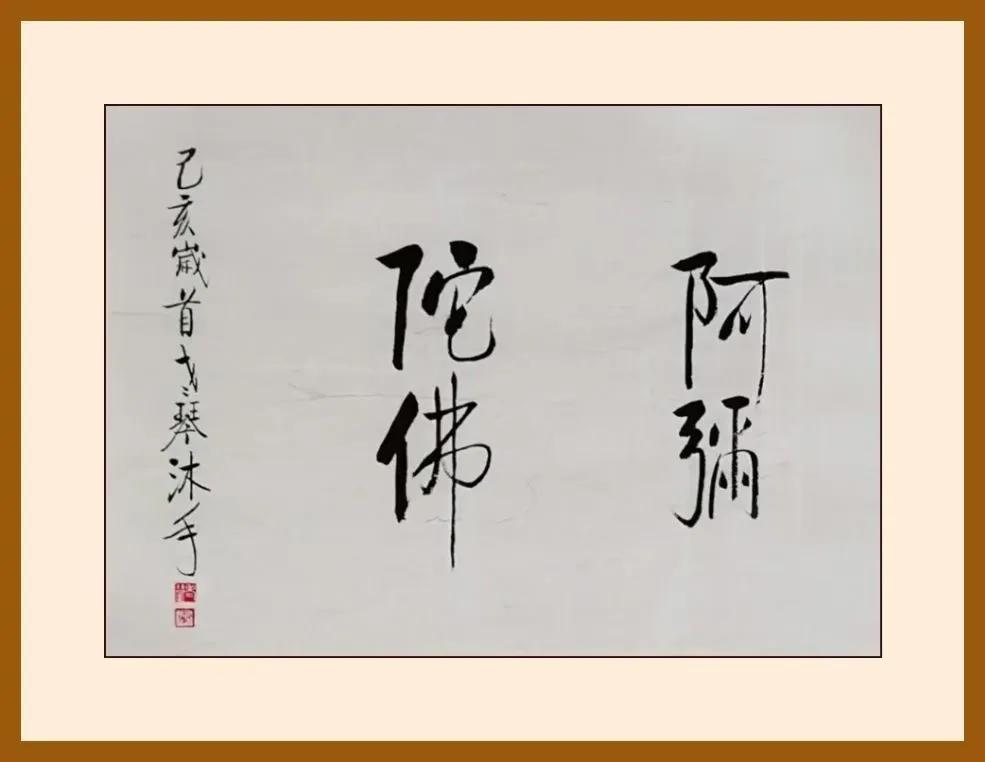 阿彌
陀佛
己亥歲首戈琴沐手